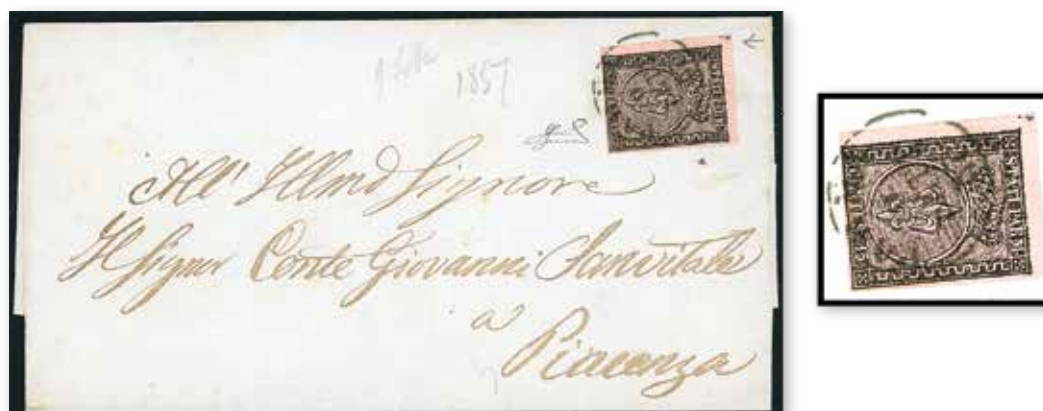 1857
All' Illmo Signore
Il Signor Conte Giovanni Sanvitale
a
Piacenza